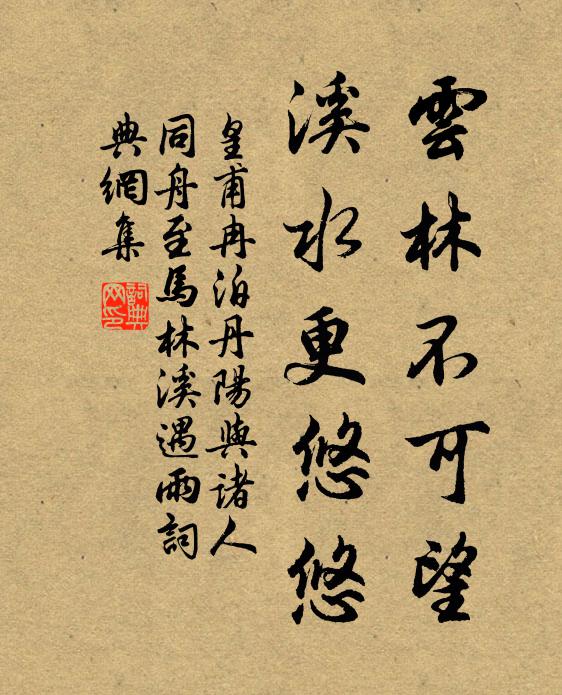 雲林不可望
溪水更悠悠
皇甫冉泊丹陽與諸人
同舟至馬林溪遇雨詞
典網集
詞典网印